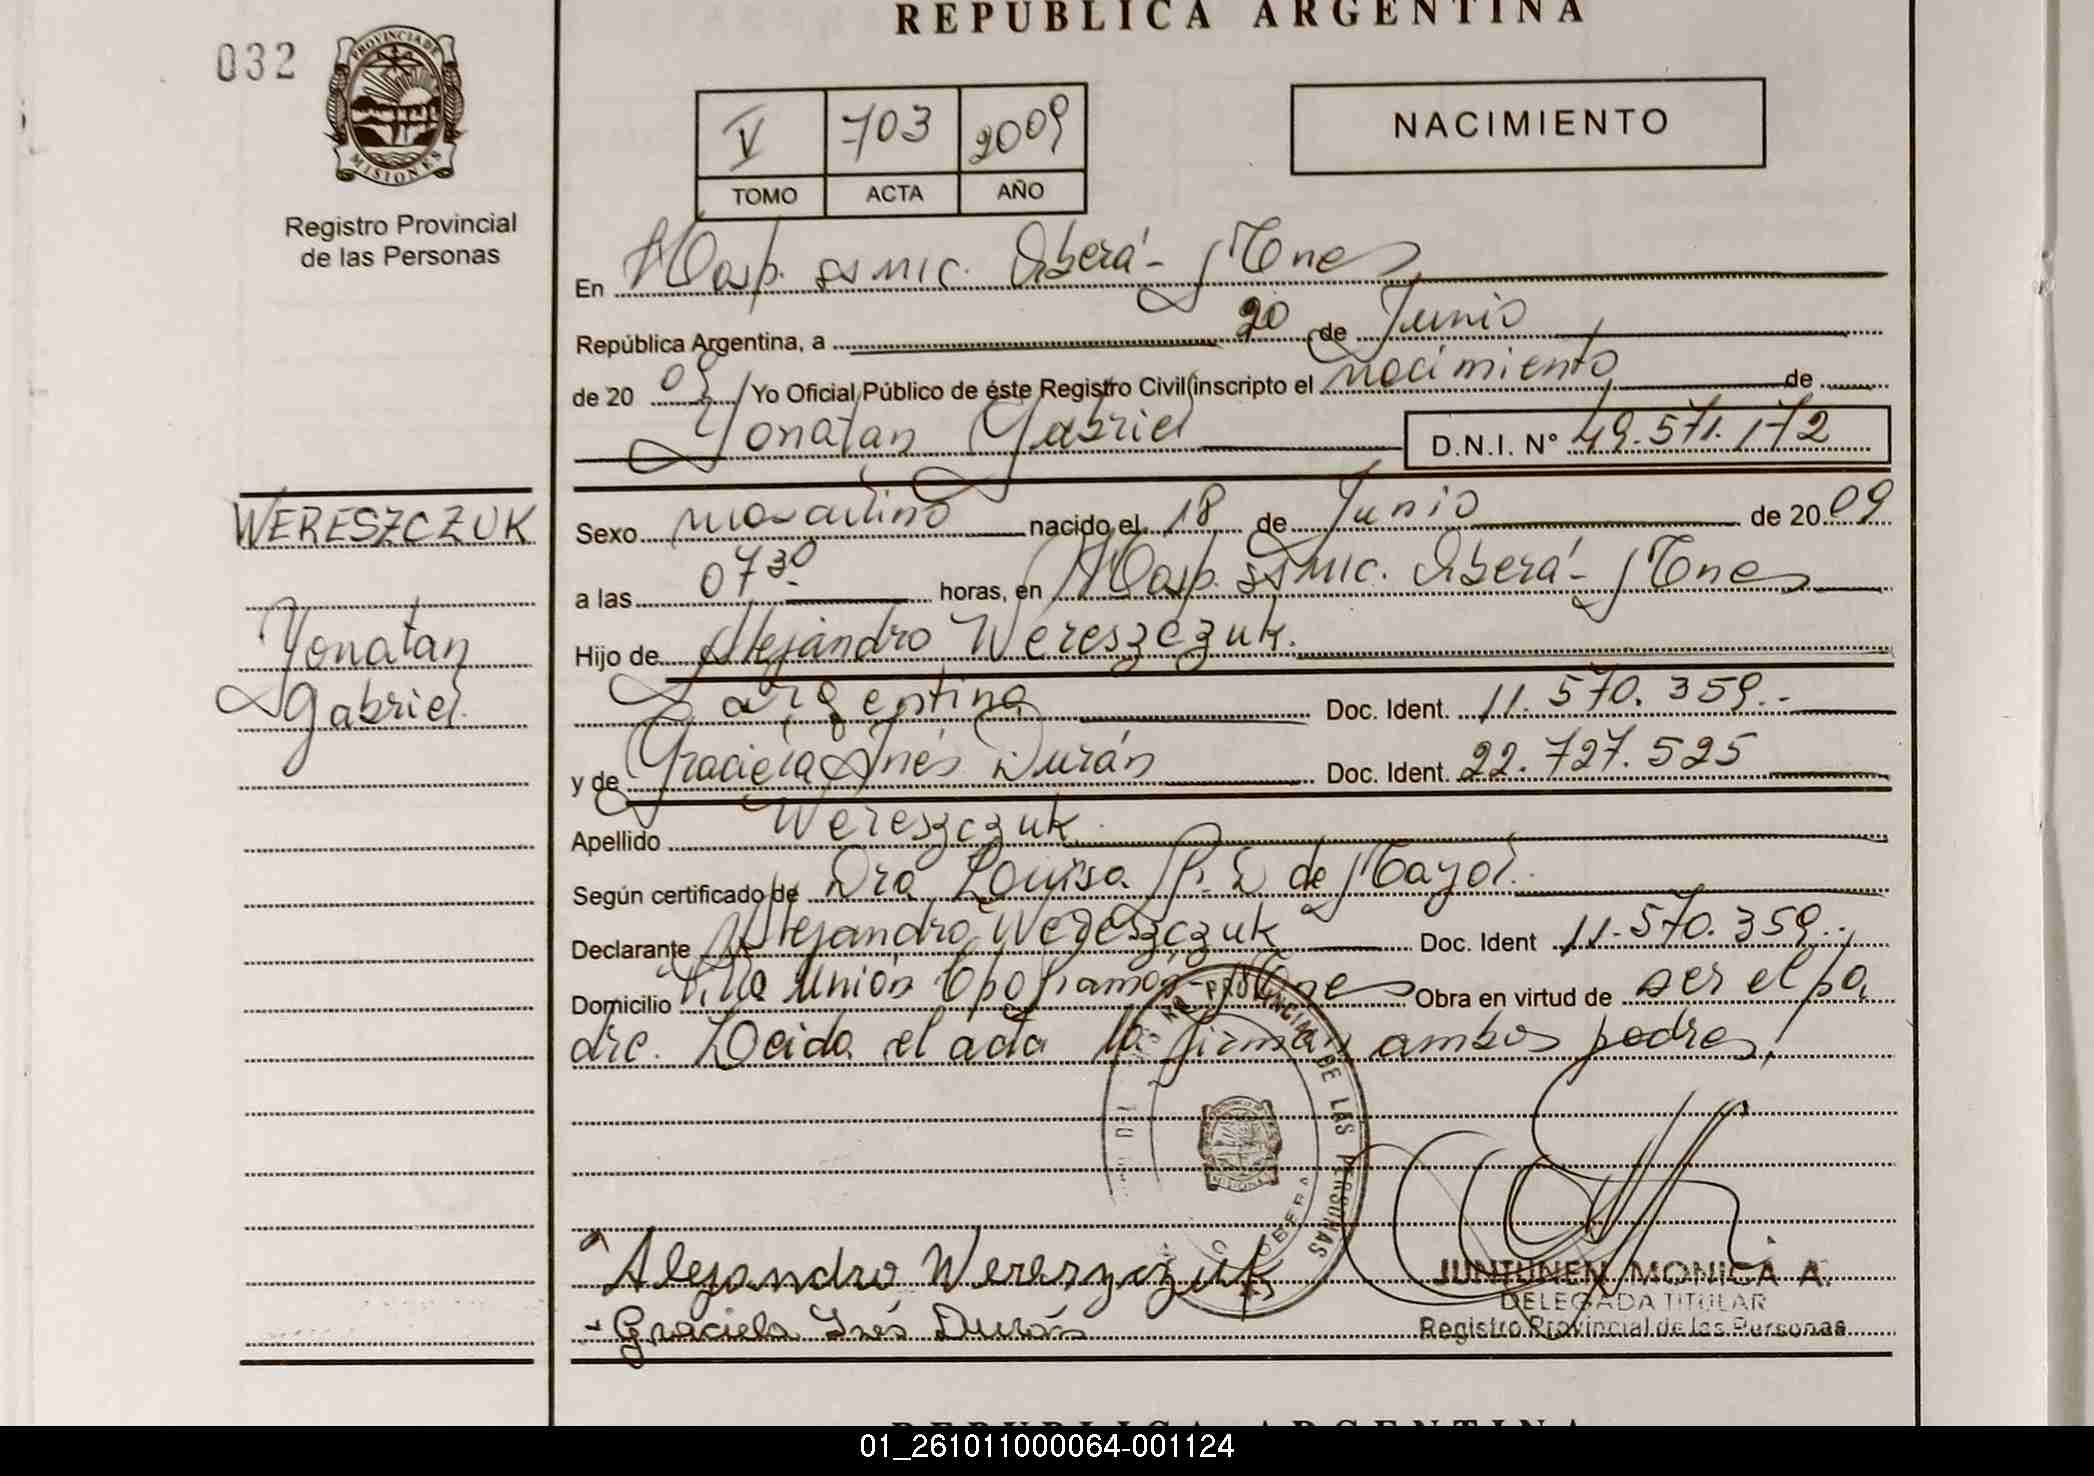 REPUBLICA ARGENTINA
032
PROVINCIA DE
MISIONES
Registro Provincial
de las Personas
V 703 2009
TOMO ACTA AÑO
NACIMIENTO
En Hosp. SAMIC. Oberá - Mnes
República Argentina, a 20 de Junio
de 2009 Yo Oficial Público de éste Registro Civil inscripto el nacimiento de
Yonatan Gabriel D.N.I. Nº 49.571.172
WERESZCZUK
Yonatan
Gabriel
Sexo masculino nacido el 18 de Junio de 2009
a las 07 30 horas, en Hosp. SAMIC. Oberá - Mnes
Hijo de Alejandro Wereszczuk.
argentina Doc. Ident. 11.570.359.-
y de Graciela Inés Durán Doc. Ident. 22.727.525
Apellido Wereszczuk
Según certificado de Dra Louisa de Mayol.
Declarante Alejandro Wereszczuk Doc. Ident 11.570.359.-
Domicilio Villa Unión Cpo Ramon - Mnes Obra en virtud de ser el pa
dre. Leida el acta la firman ambos padres,
PROVINCIAL DE LAS PERSONAS
OBERA
Alejandro Wereszczuk
Graciela Inés Durán
JUNTUNEN MONICA A.
DELEGADA TITULAR
Registro Provincial de las Personas
REPUBLICA ARGENTINA
01_261011000064-001124